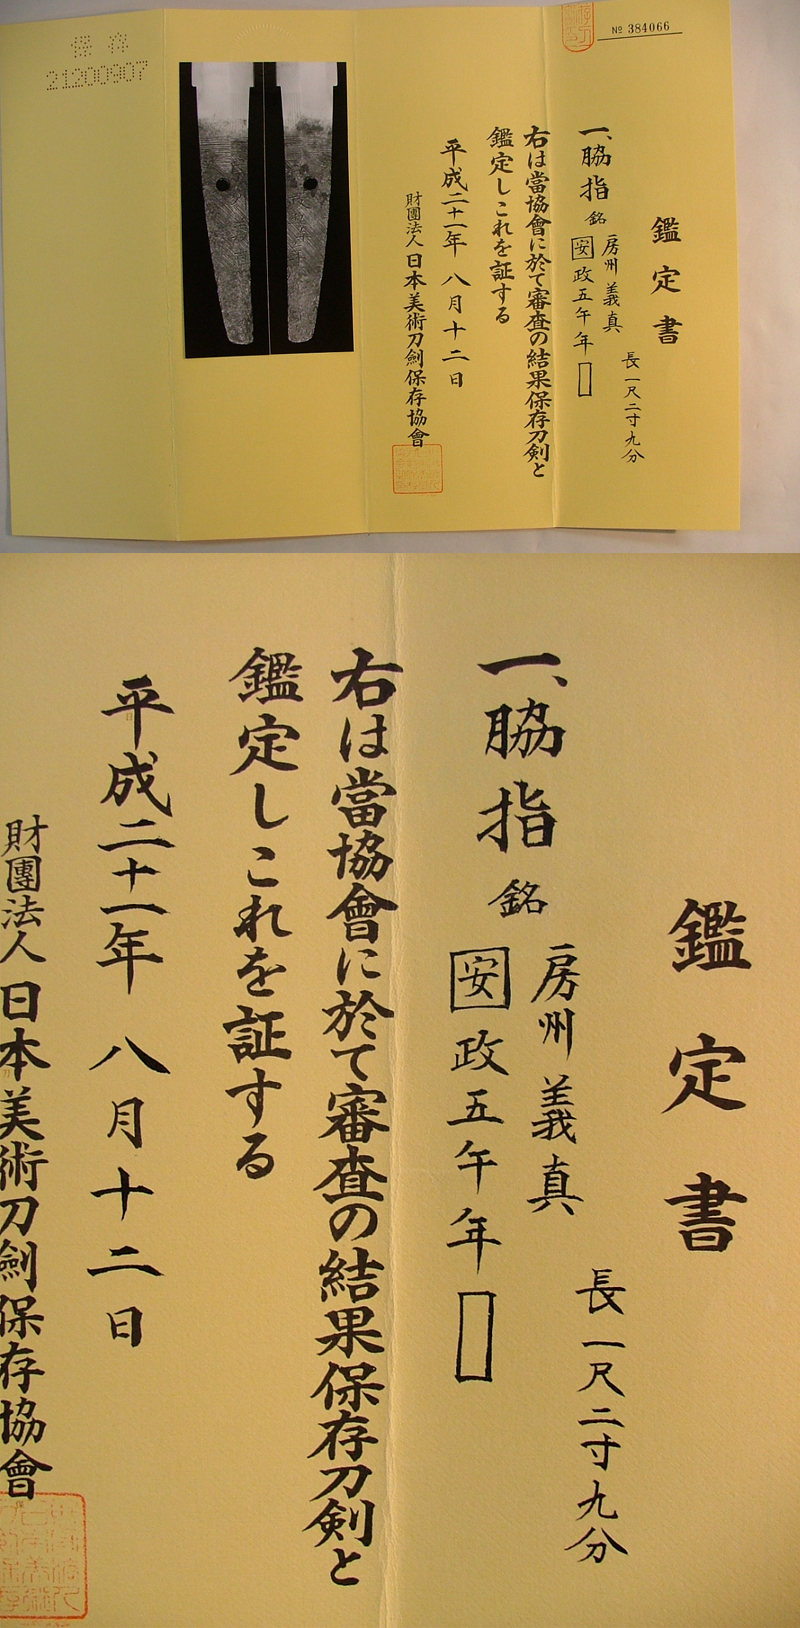 保存
21200907
№ 384066
鑑定書
一、脇指 銘
房州義真
安政五午年
長一尺二寸九分
右は當協會に於て審査の結果保存刀剣と
鑑定しこれを証する
平成二十一年 八月十二日
財團法人日本美術刀劍保存協會
鑑定書
一、脇指 銘
房州義真
安政五午年
長一尺二寸九分
右は當協會に於て審査の結果保存刀剣と
鑑定しこれを証する
平成二十一年 八月十二日
財團法人日本美術刀劍保存協會